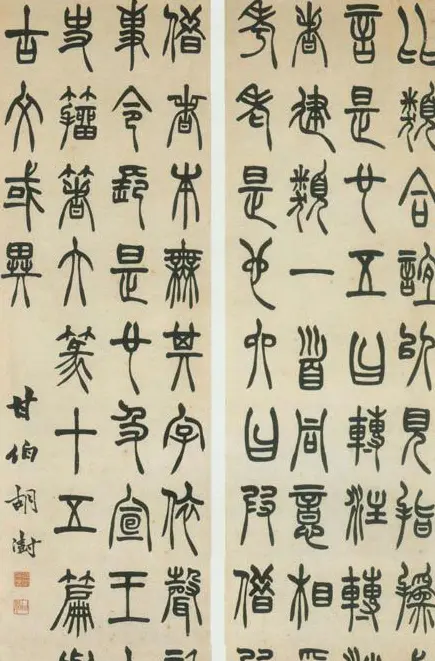 比類合誼以見指撝
言是也五曰轉注轉
者建類一首同意相
考老是也六曰叚借
借者本無其字依聲
事令長是也及宣王
史籀著大篆十五篇
古文或異
甘伯胡澍